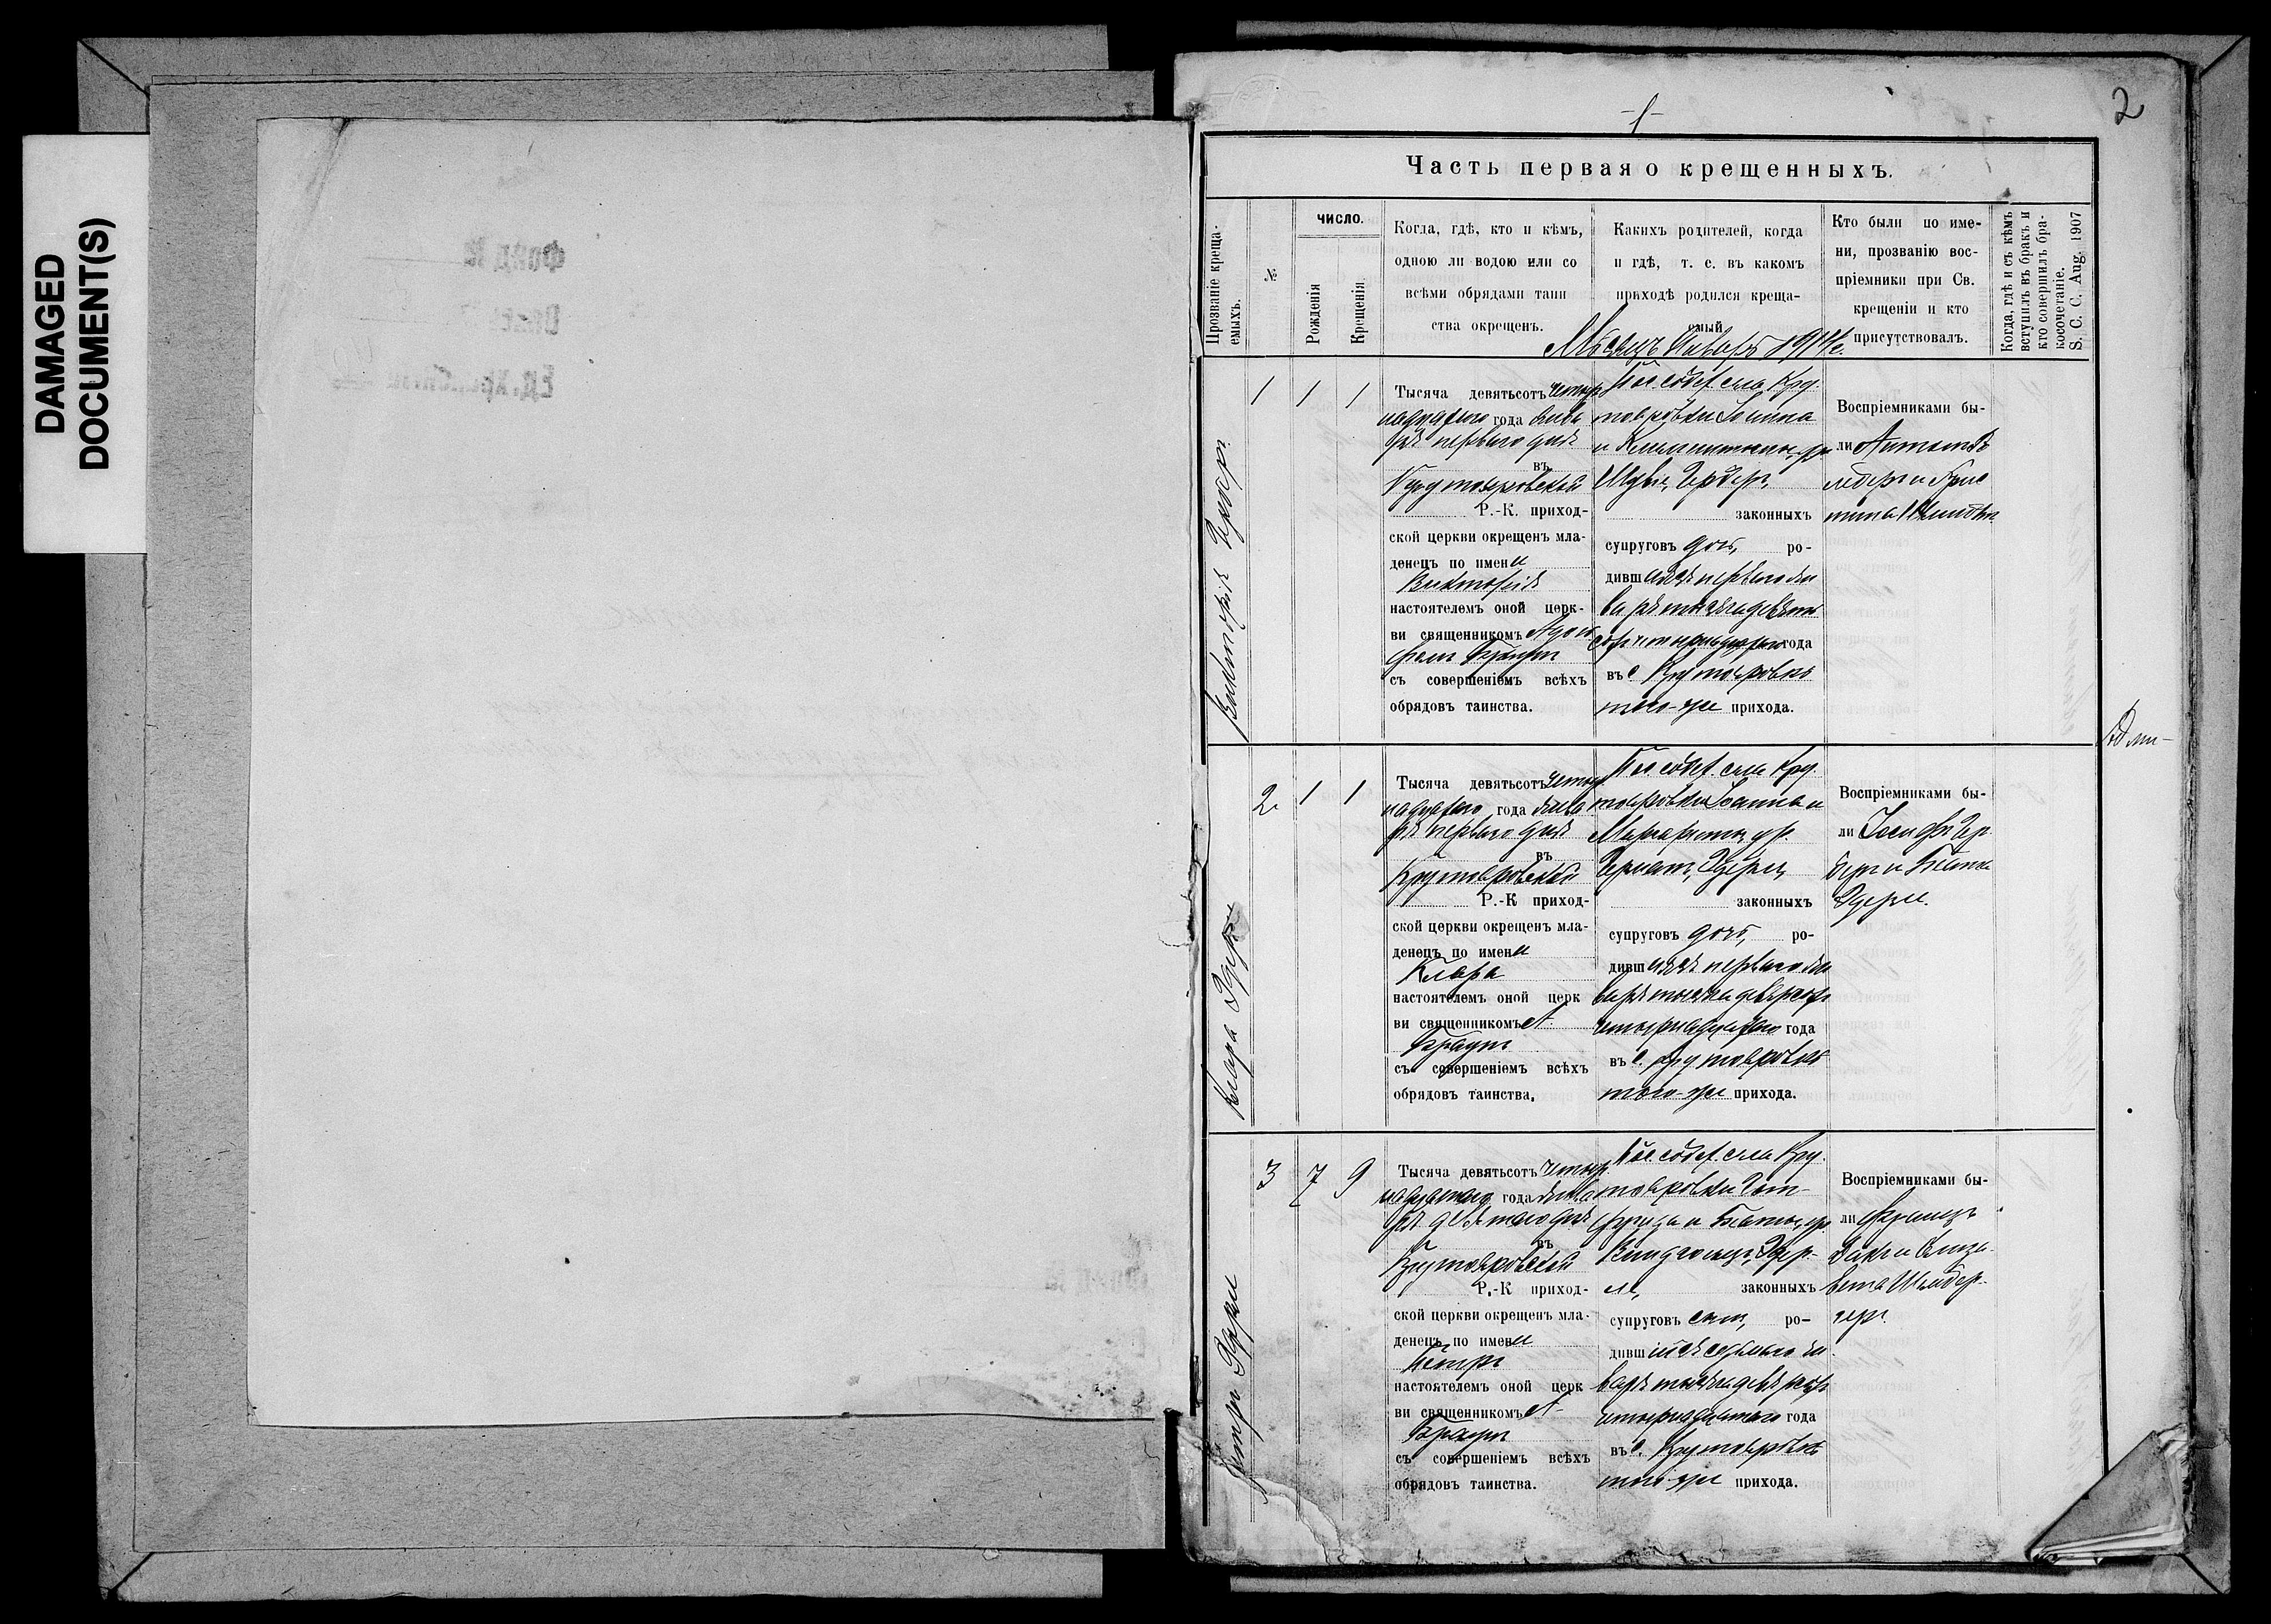 DAMAGED
DOCUMENT(S)
2
-1-
Часть первая о крещенныхъ.
Прозваніе креща-
емыхъ.
№
ЧИСЛО.
Рожденія
Крещенія
Когда, гдѣ, кто и кѣмъ,
одною ли водою или со
всѣми обрядами таин
ства окрещенъ.
Какихъ родителей, когда
и гдѣ, т. е. въ какомъ
приходѣ родился креща-
емый
Кто были по име-
ни, прозванію вос-
пріемники при Св.
крещеніи и кто
присутствовалъ.
Когда, гдѣ и съ кѣмъ
вступилъ въ бракъ и
кто совершилъ бра-
косочетаніе.
S. C. C. Aug. 1907
Мѣсяцъ Январь 1914 г.
Викторія
1
1
1
Тысяча девятьсотъ четыр
надцатаго года Янва
ря перваго дня
въ
Крутояровской
Р.-К. приход-
ской церкви окрещенъ мла-
денецъ по имени
Викторія
настоятелемъ оной церк-
ви священникомъ
съ совершеніемъ всѣхъ
обрядовъ таинства.
Пос. собст. села Кру
тояровки
и Клементины ур.
законныхъ
супруговъ дочь, ро-
дившаяся перваго Ян
варя тысяча девять
сотъ четырнадцатаго года
въ с. Крутояровкѣ
того-же прихода.
Воспріемниками бы-
ли Антонъ
тина
Клара Эдерле
2
1
1
Тысяча девятьсотъ четыр
надцатаго года Янва
ря перваго дня
въ
Крутояровской
Р.-К приход-
ской церкви окрещенъ мла-
денецъ по имени
Клара
настоятелемъ оной церк
ви священникомъ А.
Браунъ
съ совершеніемъ всѣхъ
обрядовъ таинства.
Пос. собст. села Кру
тояровки Іоанна и
Маргариты ур.
Германъ, Эдерле,
законныхъ
супруговъ дочь, ро-
дившаяся перваго Ян
варя тысяча девятьсотъ
четырнадцатаго года
въ с. Крутояровкѣ
того-же прихода.
Воспріемниками бы-
ли Іосифъ Гер
бергъ и
Эдерле.
Петръ Эдерле
3
7
9
Тысяча девятьсотъ четыр
надцатаго года Янва
ря девятаго дня
въ
Крутояровской
Р.-К приход-
ской церкви окрещенъ мла-
денецъ по имени
Петръ
настоятелемъ оной церк
ви священникомъ А.
Браунъ
съ совершеніемъ всѣхъ
обрядовъ таинства.
Пос. собст. села Кру
тояровки Гот-
фрида и ур.
Эдер-
ле, законныхъ
супруговъ сынъ, ро-
дившійся седьмого Ян
варя тысяча девятьсотъ
четырнадцатаго года
въ с. Крутояровкѣ
того-же прихода.
Воспріемниками бы-
ли Францъ
и Елиза
вета